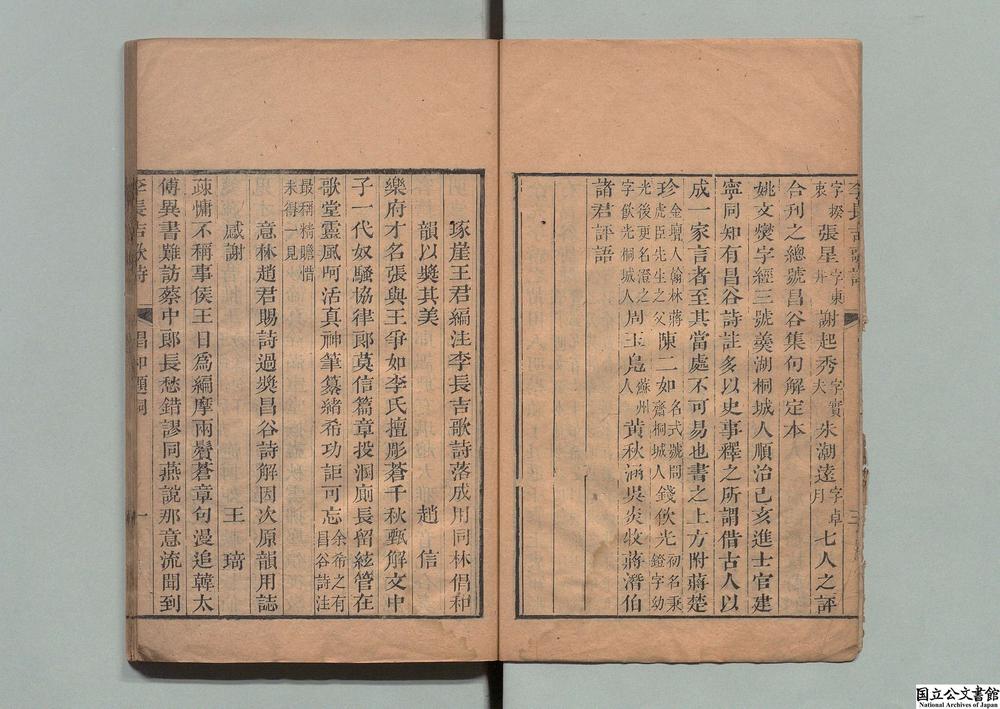 李長吉歌詩
三
字揆東張星字東井謝起秀字實夫朱潮遠字卓月七人之評
合刊之總號昌谷集句解定本
姚文燮字經三號羹湖桐城人順治己亥進士官建
寧同知有昌谷詩註多以史事釋之所謂借古人以
成一家言者至其當處不可易也書之上方附蔣楚
珍金壇人翰林蔣虎臣先生之父陳二如名式號問齋桐城人錢飲光初名秉鐙字幼光後更名澄之字飲光桐城人周玉鳧蘇州人黃秋涵吳炎牧蔣潛伯
諸君評語
琢崖王君編注李長吉歌詩落成用同林倡和
韻以獎其美 趙信
樂府才名張與王爭如李氏擅彫蒼千秋甄解文中
子一代奴騷協律郎莫信篇章投溷廁長留絃管在
歌堂靈風呵活真神筆纂緒希功詎可忘余希之有昌谷詩注
最稱精贍惜未得一見
意林趙君賜詩過獎昌谷詩解因次原韻用誌
感謝 王琦
疎慵不稱事侯王日為編摩兩鬢蒼章句漫追韓太
傅異書難訪蔡中郎長愁錯謬同燕說那意流聞到
李長吉歌詩 倡和題詞 一
国立公文書館
National Archives of Japan